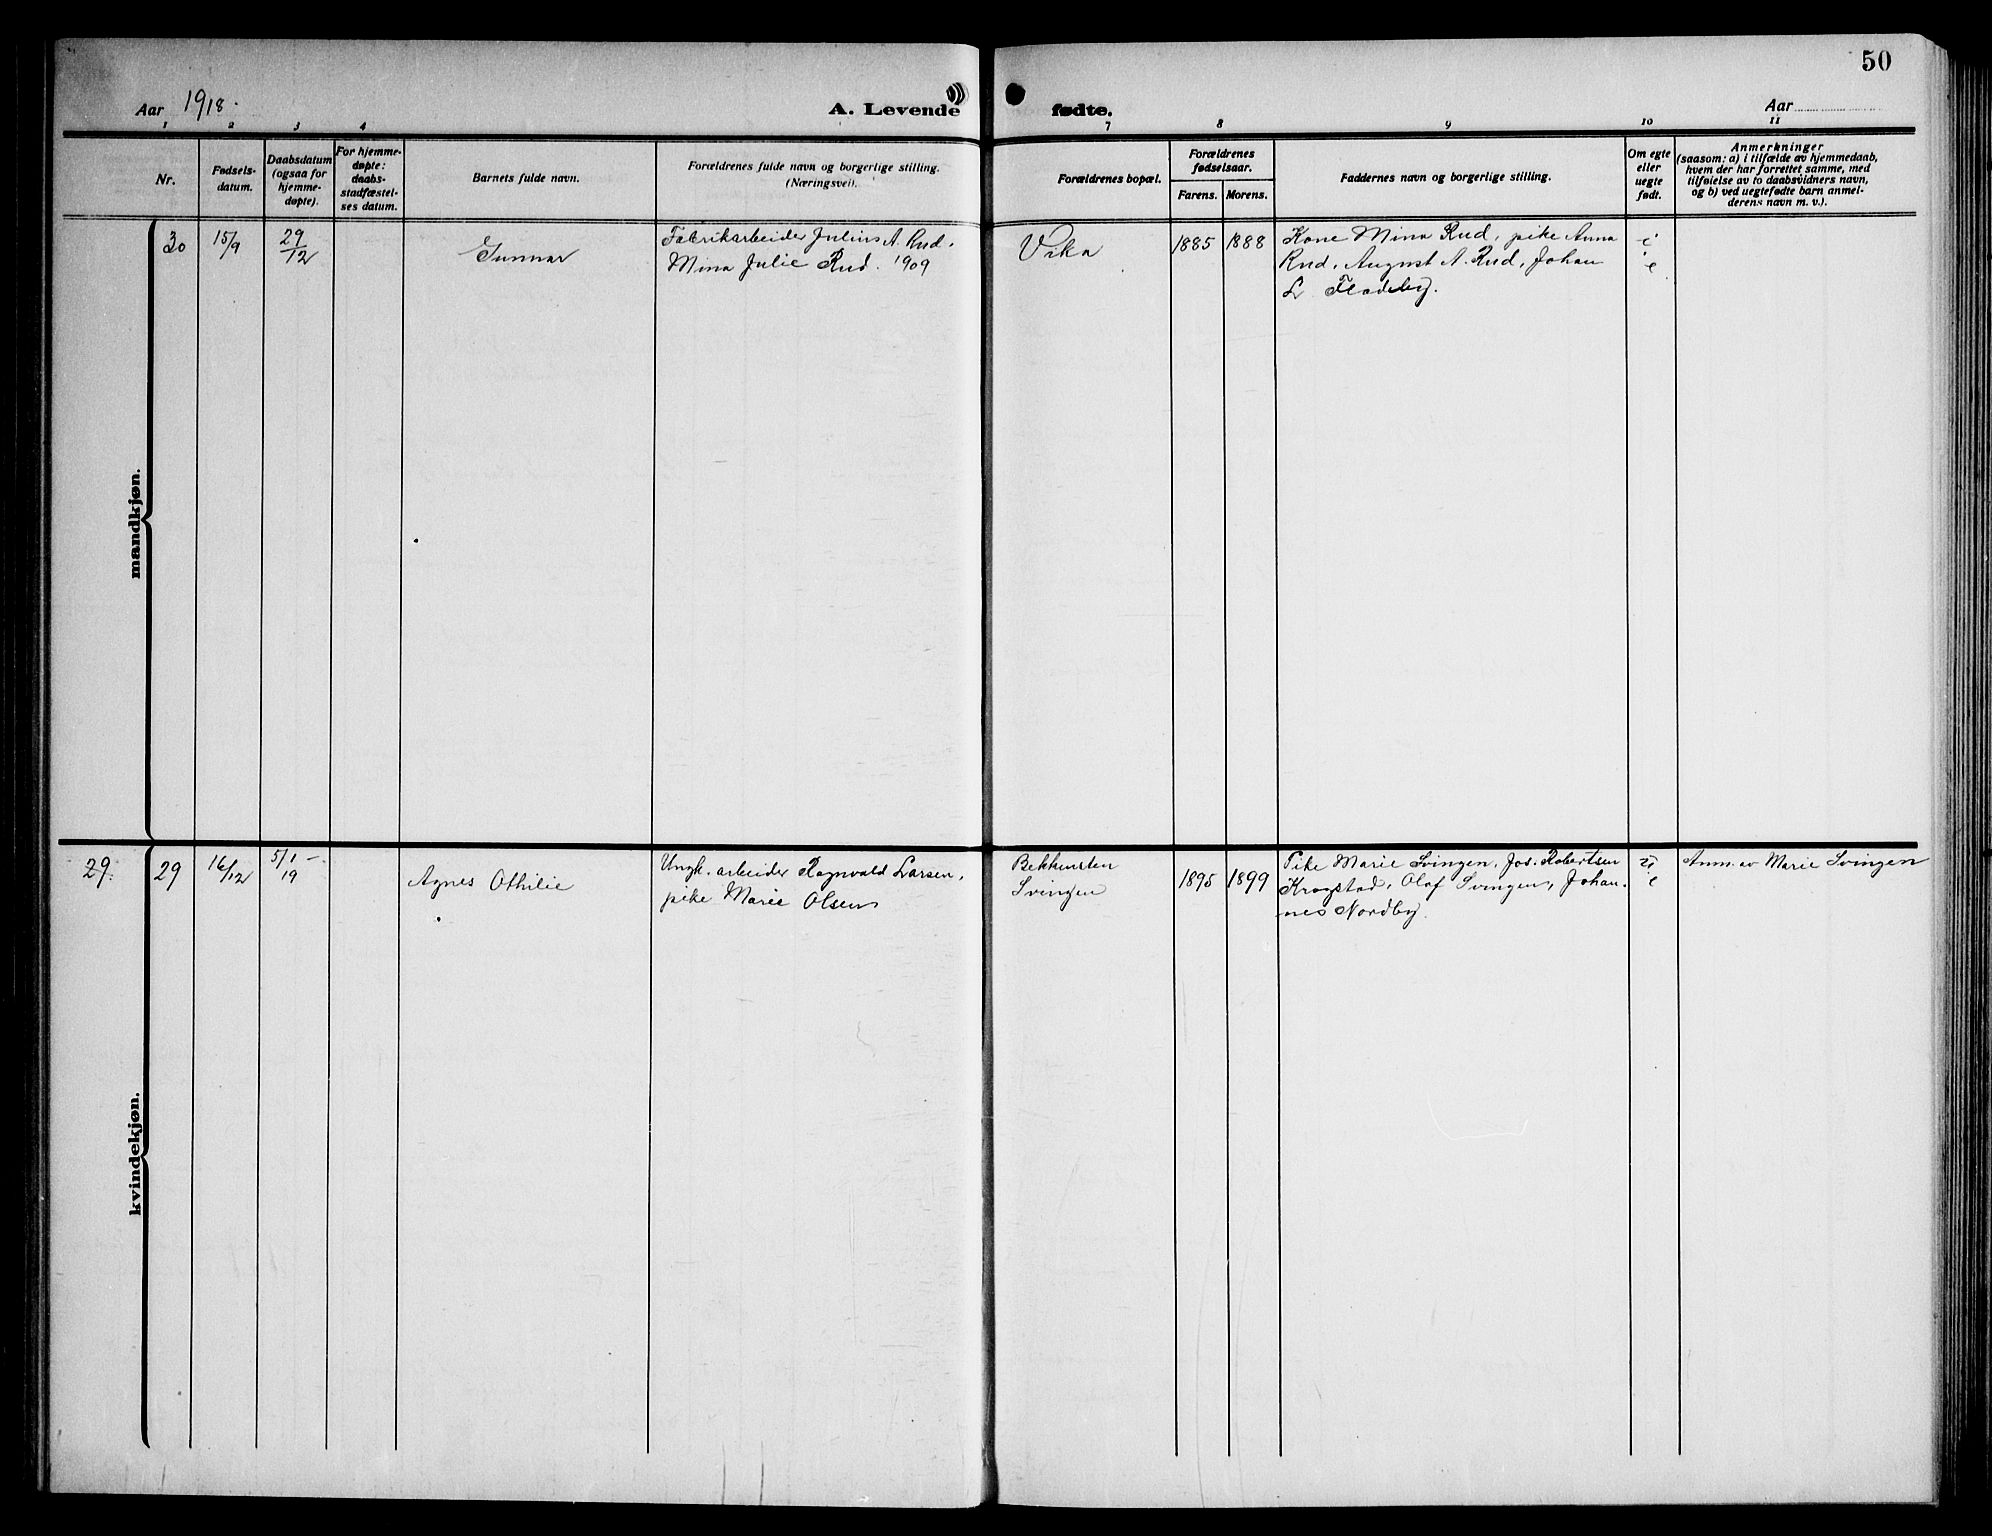 50
Aar 1918.
A. Levende
fødte.
Aar
1 2 3 4
7 8 9 10 11
Nr.
Fødsels-
datum.
Daabsdatum
(ogsaa for
hjemme-
døpte).
For hjemme-
døpte:
daabs-
stadfæstel-
ses datum.
Barnets fulde navn.
Forældrenes fulde navn og borgerlige stilling.
(Næringsvei).
Forældrenes bopæl.
Forældrenes
fødselsaar.
Farens. Morens.
Faddernes navn og borgerlige stilling.
Om egte
eller
uegte
født.
Anmerkninger
(saasom: a) i tilfælde av hjemmedaab,
hvem der har forrettet samme, med
tilføielse av to daabsvidners navn,
og b) ved uegtefødte barn anmel-
derens navn m. v.).
mandkjøn.
30
15/9
29
12
Gunnar
Fabrikarbeider Julius A. Rud.
Mina Julie Rud. 1909
Vika
1885 1888
Kone Mina Rud, pike Anna
Rud, August A. Rud, Johan
L Fladeby.
kvindekjøn.
29.
29
16/12
5/1 -
19
Agnes Othilie
Ungk. arbeider Ragnvald Larsen,
pike Marie Olsen
Bekkensten
Svingen
1895 1899
Pike Marie Svingen, Jos. Robertsen
Krogstad, Olaf Svingen, Johan-
nes Nordby.
Anm. av Marie Svingen